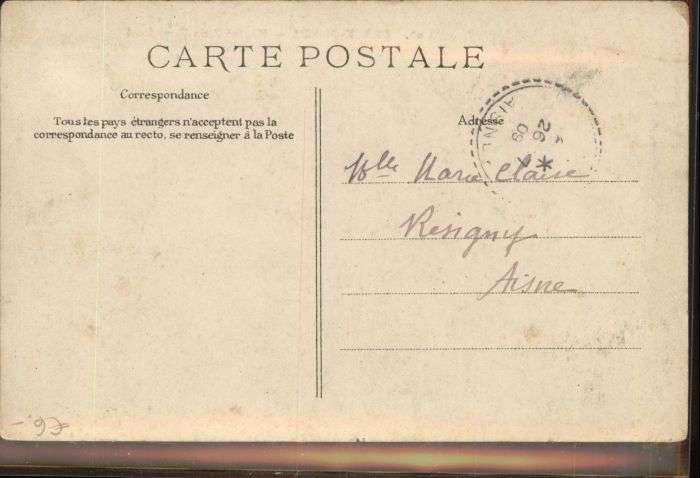 CARTE POSTALE
Correspondance
Tous les pays étrangers n'acceptent pas la
correspondance au recto, se renseigner à la Poste
Adresse
AISNE
26
09
Mlle Marie Claire
Résigny
Aisne